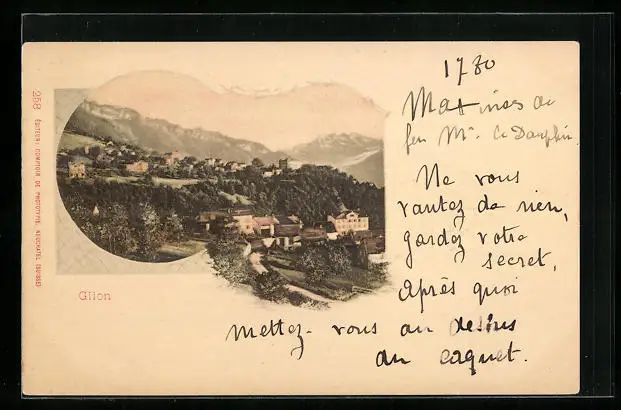 1780
Maximes de
feu Mr. le Dauphin
Ne vous
vantez de rien,
gardez votre
secret,
Après quoi
mettez-vous au dessus
du caquet.
Glion
258 ÉDITEUR: COMPTOIR DE PHOTOTYPIE, NEUCHATEL (SUISSE)